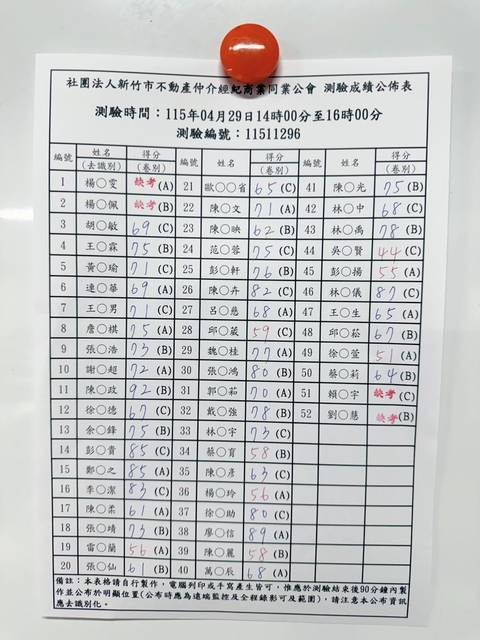 社團法人新竹市不動產仲介經紀商業同業公會 測驗成績公佈表
測驗時間：115年04月29日14時00分至16時00分
測驗編號：11511296
編號 姓名(去識別) 得分(卷別) 編號 姓名(去識別) 得分(卷別) 編號 姓名(去識別) 得分(卷別)
1 楊○雯 缺考(A) 21 歐○○省 65(C) 41 陳○光 75(B)
2 楊○佩 缺考(B) 22 陳○文 71(A) 42 林○中 68(C)
3 胡○敏 69(C) 23 陳○映 62(B) 43 林○禹 78(B)
4 王○霖 75(B) 24 范○蓉 75(C) 44 吳○賢 44(C)
5 黃○瑜 71(C) 25 彭○軒 76(B) 45 彭○揚 55(A)
6 連○華 69(A) 26 陳○卉 82(C) 46 林○儀 87(C)
7 王○男 71(C) 27 呂○慈 68(A) 47 王○生 65(A)
8 詹○棋 75(A) 28 邱○葳 59(C) 48 邱○菘 67(B)
9 張○浩 73(B) 29 魏○桂 77(A) 49 徐○萱 51(A)
10 謝○超 72(A) 30 張○鴻 80(B) 50 蔡○莉 64(B)
11 陳○政 92(B) 31 郭○茹 70(A) 51 賴○宇 缺考(C)
12 徐○德 67(C) 32 戴○強 78(B) 52 劉○慧 缺考(B)
13 余○鋒 75(B) 33 林○宇 73(C)
14 彭○貴 85(C) 34 蔡○育 58(B)
15 鄭○之 85(A) 35 陳○彥 63(C)
16 李○潔 83(C) 36 楊○玲 56(A)
17 陳○柔 61(A) 37 徐○助 80(C)
18 張○靖 73(B) 38 廖○信 89(A)
19 雷○蘭 56(A) 39 陳○麗 58(B)
20 張○仙 61(B) 40 萬○辰 68(A)
備註：本表格請自行製作，電腦列印或手寫產生皆可，惟應於測驗結束後90分鐘內製
作並公布於明顯位置(公布時應為遠端監控及全程錄影可及範圍)，請注意本公布資訊
應去識別化。